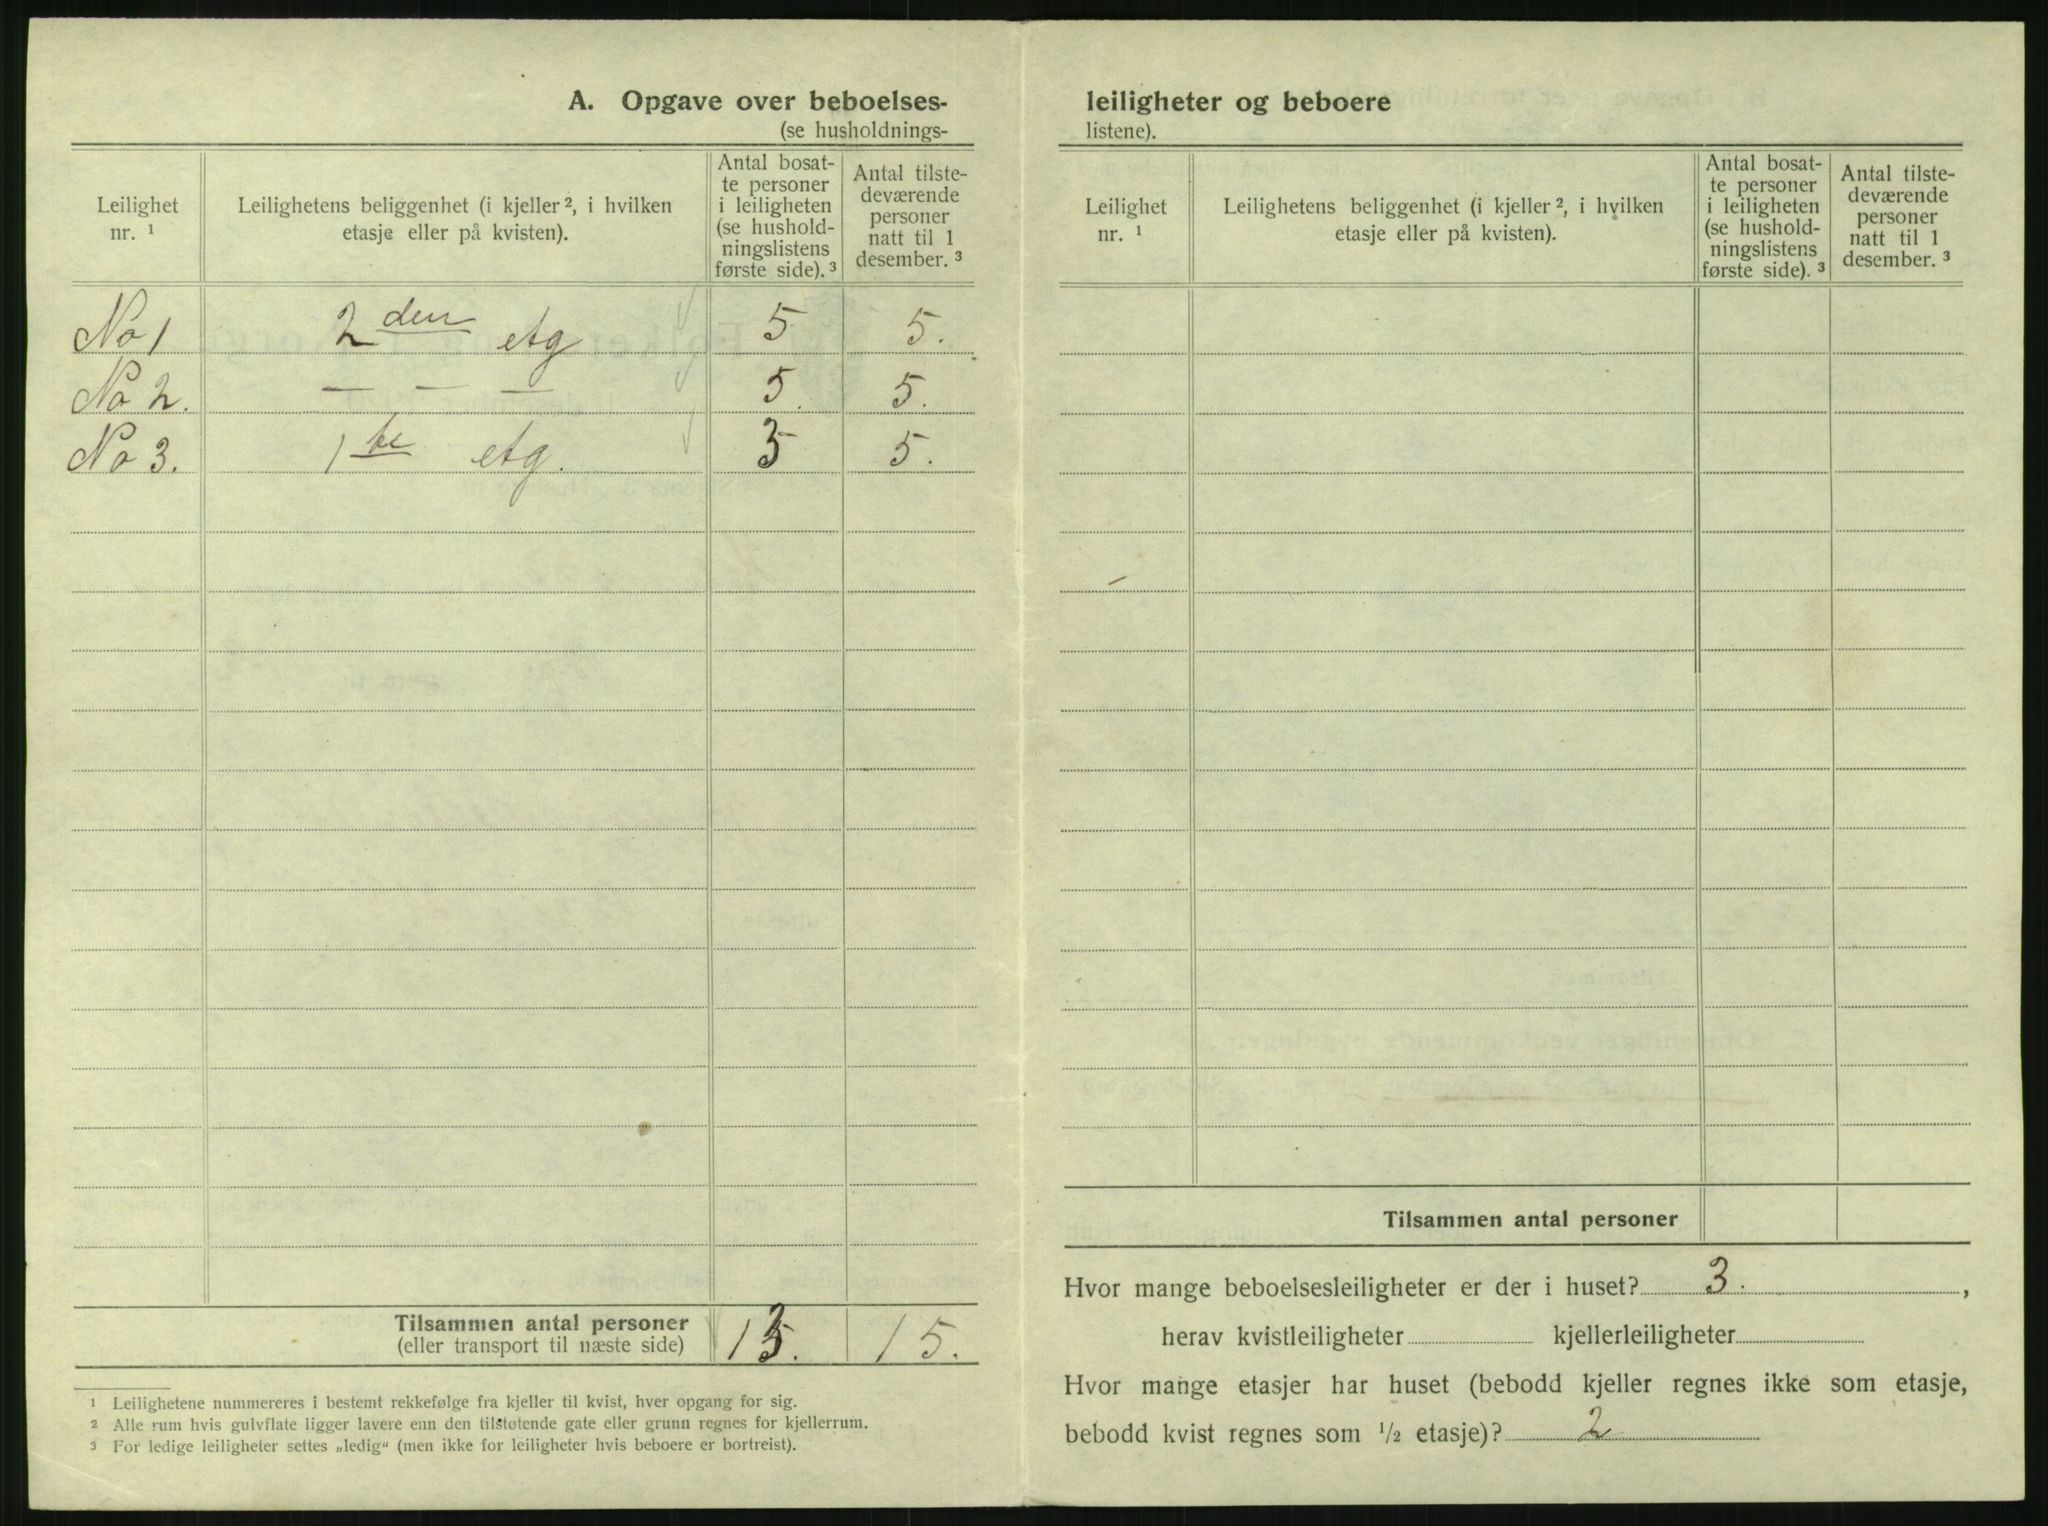 A. Opgave over beboelses-
(se husholdnings-
Leilighet nr. ¹
Leilighetens beliggenhet (i kjeller ², i hvilken etasje eller på kvisten).
Antal bosat-
te personer
i leiligheten
(se hushold-
ningslistens
første side). ³
Antal tilste-
deværende
personer
natt til 1
desember. ³
No 1 2den etg 5 5.
No 2. — — — 5. 5.
No 3. 1te etg. 3 5.
Tilsammen antal personer 13. 15.
(eller transport til næste side)
¹ Leilighetene nummereres i bestemt rekkefølge fra kjeller til kvist, hver opgang for sig.
² Alle rum hvis gulvflate ligger lavere enn den tilstøtende gate eller grunn regnes for kjellerrum.
³ For ledige leiligheter settes „ledig“ (men ikke for leiligheter hvis beboere er bortreist).
leiligheter og beboere
listene).
Leilighet nr. ¹
Leilighetens beliggenhet (i kjeller ², i hvilken etasje eller på kvisten).
Antal bosat-
te personer
i leiligheten
(se hushold-
ningslistens
første side). ³
Antal tilste-
deværende
personer
natt til 1
desember. ³
Tilsammen antal personer
Hvor mange beboelsesleiligheter er der i huset? 3. ,
herav kvistleiligheter kjellerleiligheter
Hvor mange etasjer har huset (bebodd kjeller regnes ikke som etasje,
bebodd kvist regnes som ½ etasje)? 2